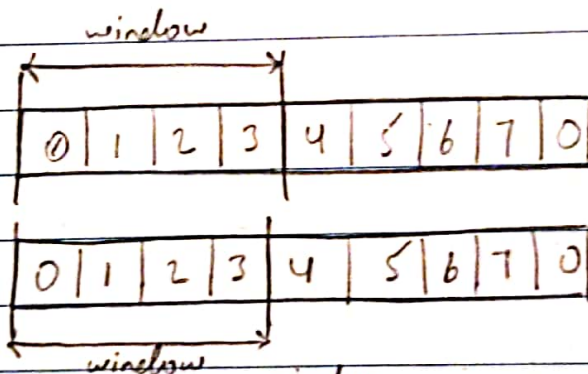 window
0 1 2 3 4 5 6 7 0
0 1 2 3 4 5 6 7 0
window